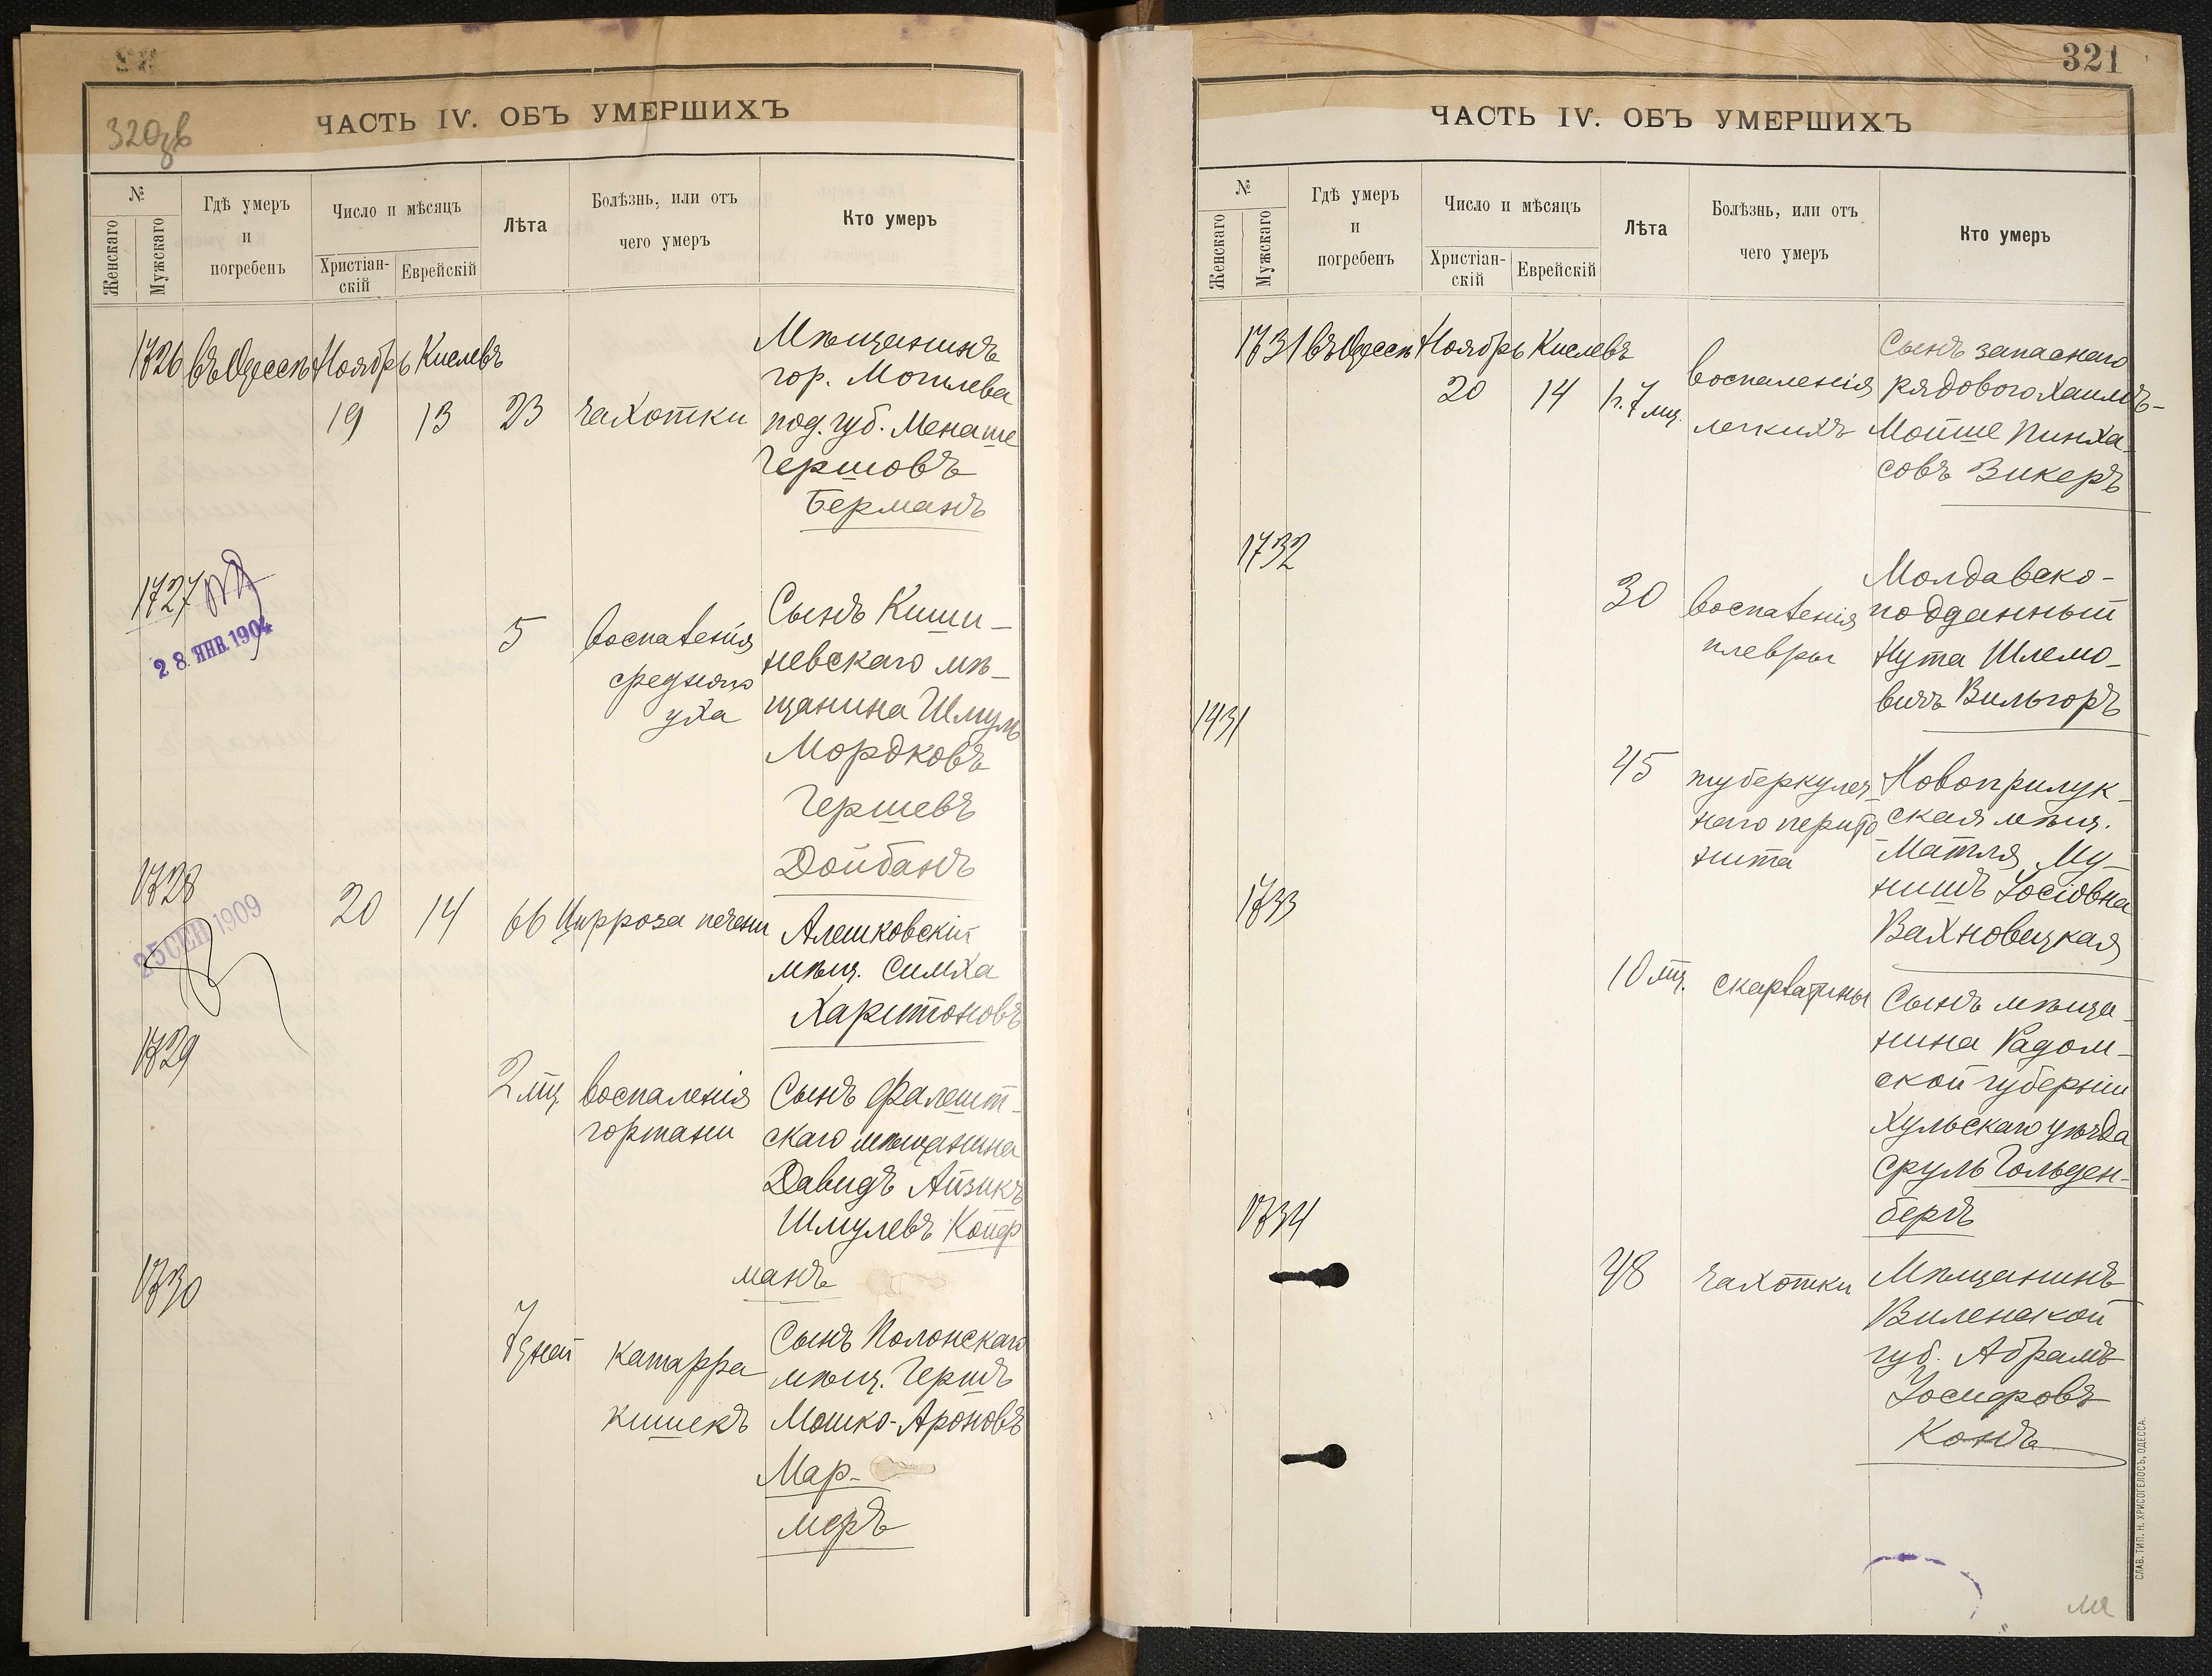 320зв
ЧАСТЬ IV. ОБЪ УМЕРШИХЪ
№
Женскаго
Мужскаго
Гдѣ умеръ
и
погребенъ
Число и мѣсяцъ
Христіан-
скій
Еврейскій
Лѣта
Болѣзнь, или отъ
чего умеръ
Кто умеръ
1726 въ Одессѣ Ноябрь Кислевъ
19 13 23 чахотки
Мѣщанинъ
гор. Могилева
под. губ. Менаше
Гершовъ
Берманъ
1727
28 ЯНВ. 1904
5 воспаленія
средняго
уха
Сынъ Киши-
невскаго мѣ-
щанина Шмуль
Мордковъ
Гершевъ
Дойбанъ
1728
25 СЕН 1909
20 14 66 Цирроза печени
Алешковскій
мѣщ. Симха
Харитоновъ
1729
2 мц. воспаленія
гортани
Сынъ Фалешт-
скаго мѣщанина
Давидъ Айзикъ
Шмулевъ Койф
манъ
1730
7 дней катарра
кишекъ
Сынъ Полонскаго
мѣщ. Гершъ
Мошко-Ароновъ
Мар-
меръ
321
ЧАСТЬ IV. ОБЪ УМЕРШИХЪ
№
Женскаго
Мужскаго
Гдѣ умеръ
и
погребенъ
Число и мѣсяцъ
Христіан-
скій
Еврейскій
Лѣта
Болѣзнь, или отъ
чего умеръ
Кто умеръ
1731 въ Одессѣ Ноябрь Кислевъ
20 14 1 г. 7 мц.
воспаленія
легкихъ
Сынъ запаснаго
рядового Хаимъ-
Мойше Пинха-
совъ Викеръ
1732
30 воспаленія
плевры
Молдавско-
подданный
Нута Шлемо-
вичъ Вильгоръ
1431
45 туберкулез-
наго перито-
нита
Новоприлук-
ская мѣщ.
Матля Му-
нишъ Іосіовна
Вахновецкая
1733
10 мц. скарлатины
Сынъ мѣща-
нина Радом-
ской губерніи
Хульскаго уѣзда
Сруль Гольден-
бергъ
1734
48 чахотки
Мѣщанинъ
Виленской
губ. Абрамъ
Іосифовъ
Конъ
СЛАВ. ТИП. Н. ХРИСОГЕЛОСЪ, ОДЕССА.